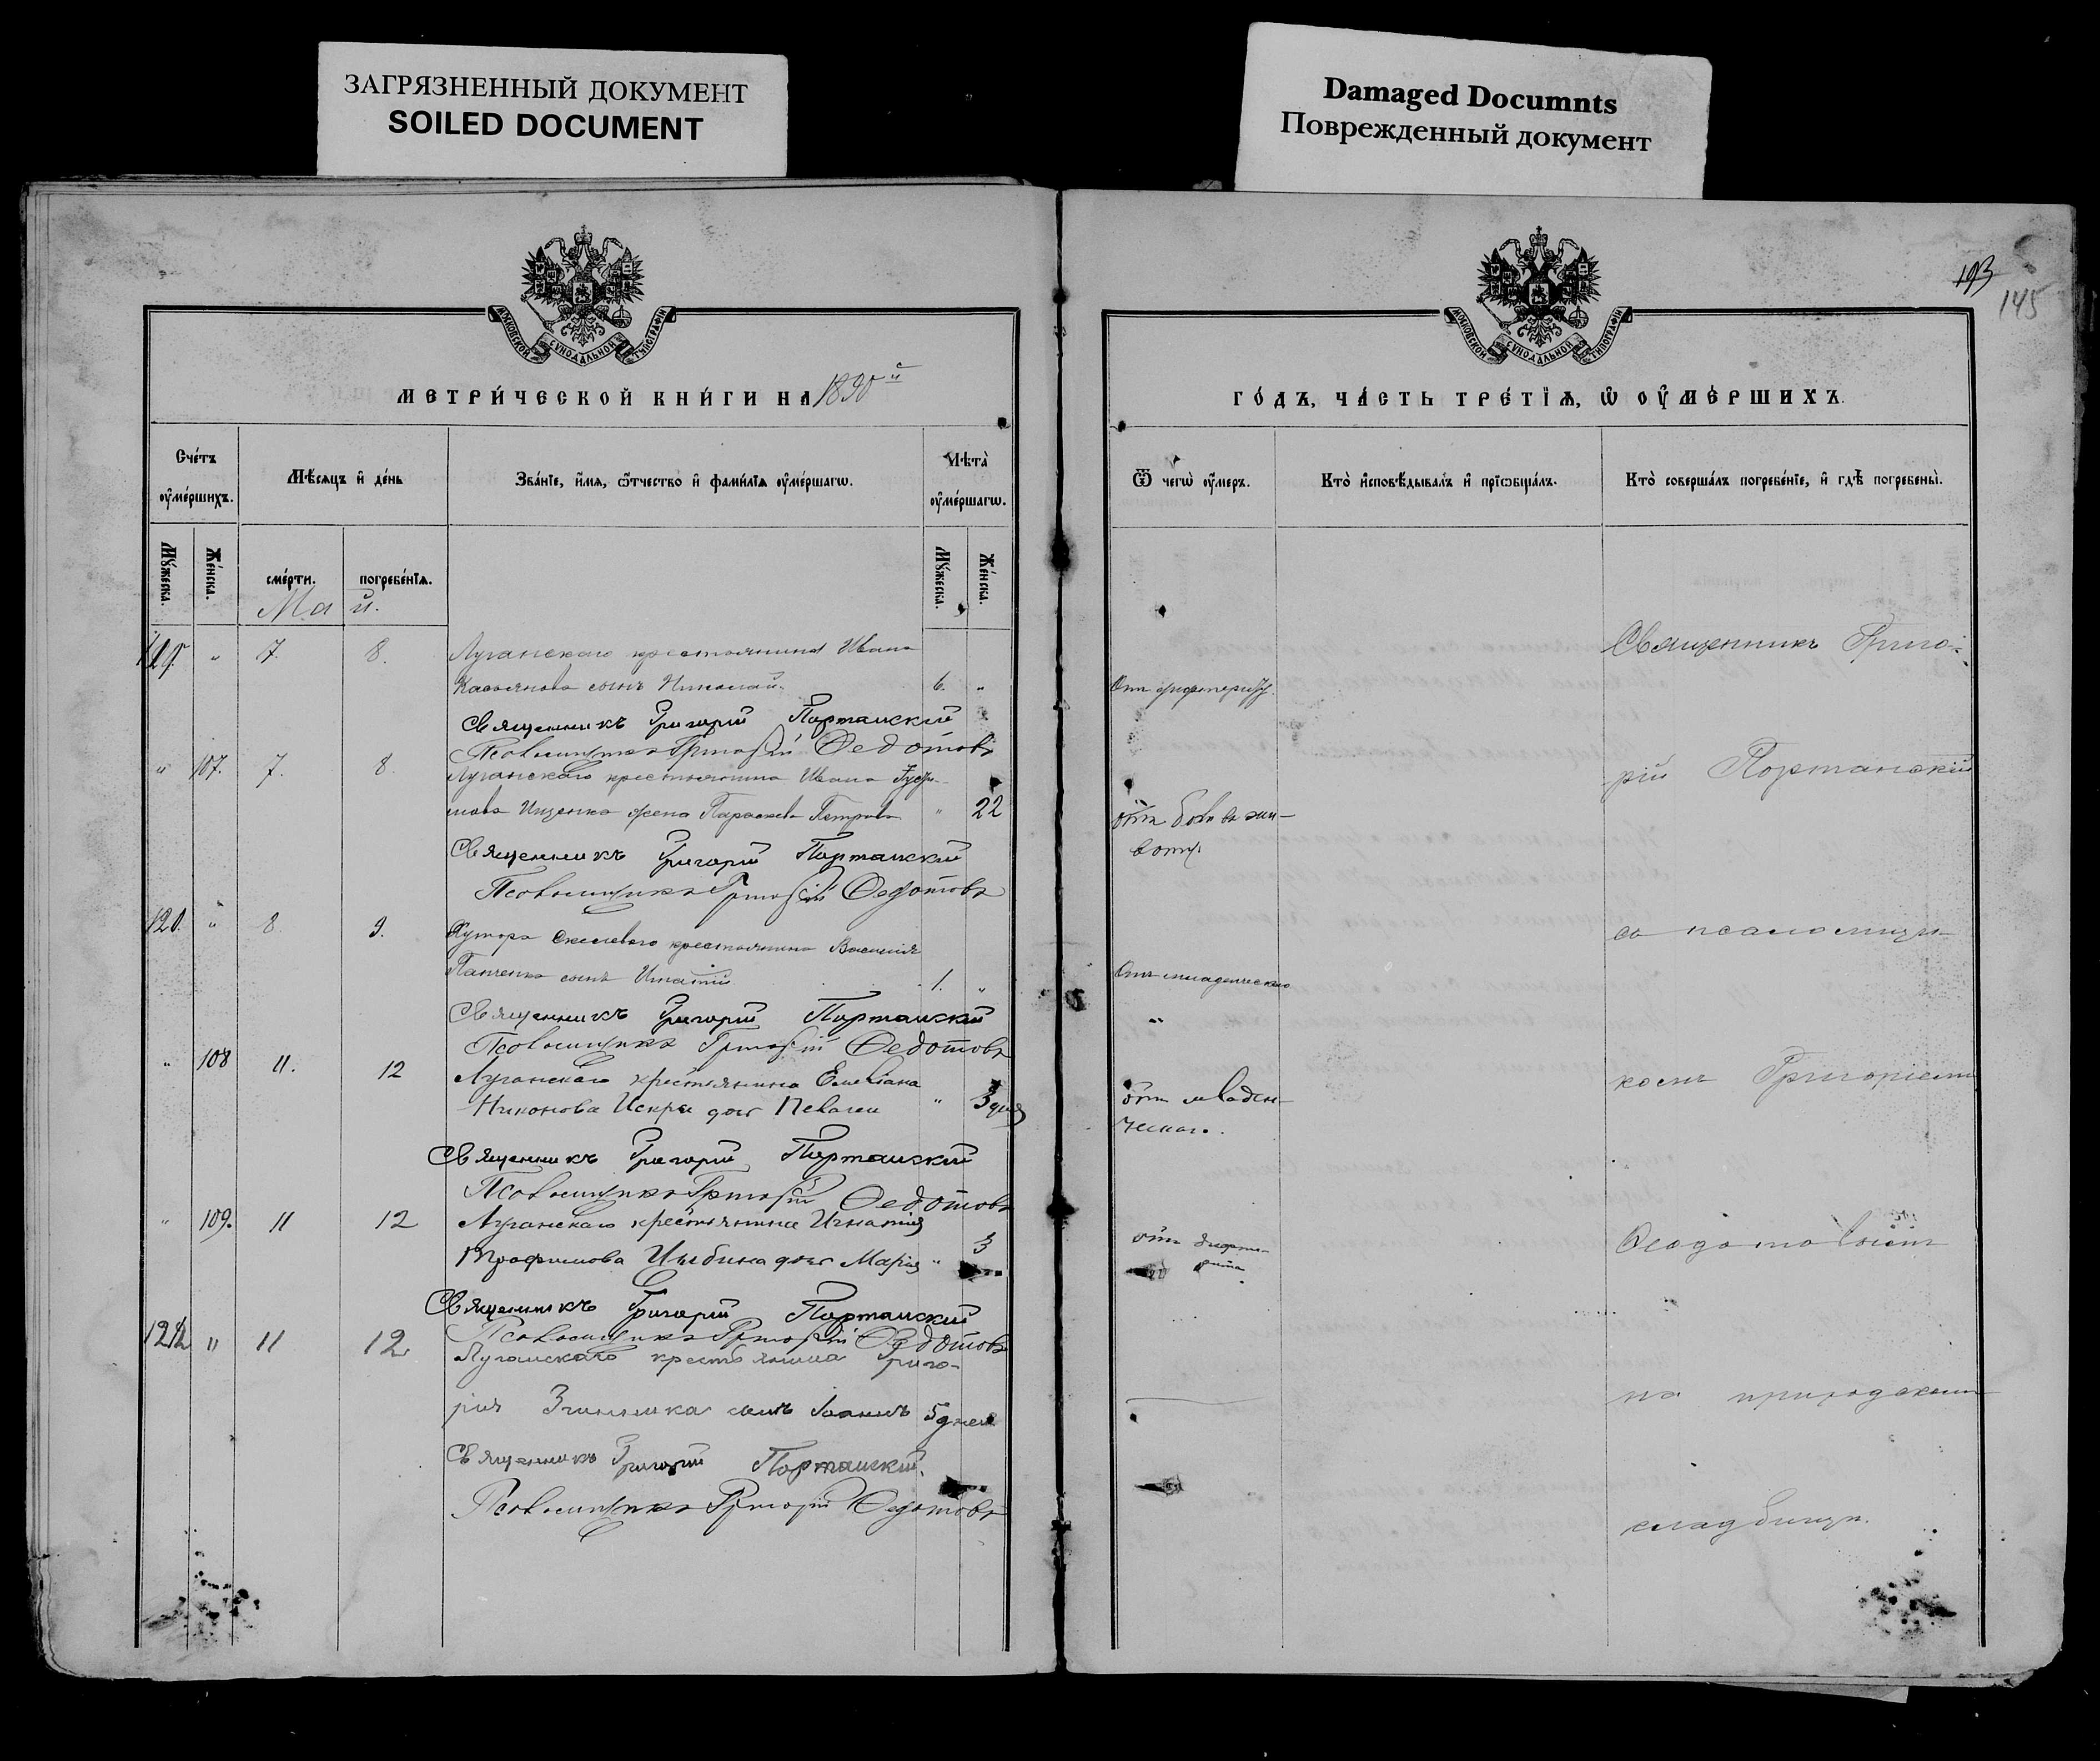 ЗАГРЯЗНЕННЫЙ ДОКУМЕНТ
SOILED DOCUMENT
Damaged Documnts
Поврежденный документ
МОСКОВСКОЙ СѴНОДАЛЬНОЙ ТИПОГРАФІИ
МЕТРИ́ЧЕСКОЙ КНИ́ГИ НА 1890й
Сче́тъ ᲂу҆ме́ршихъ.
Мѣ́сяцъ и҆ де́нь
Зва́нїе, и҆́мя, ѻ҆́тчество и҆ фами́лїя ᲂу҆ме́ршагѡ.
Лѣ́та ᲂу҆ме́ршагѡ.
Мꙋ́жеска.
Же́нска.
сме́рти.
погребе́нїѧ.
Мꙋ́жеска.
Же́нска.
Май.
119. " 7. 8. Луганскаго крестьянина Ивана
Касьянова сынъ Николай. 6. "
Священникъ Григорій Портанскій
Псаломщикъ Григорій Федотовъ
" 107. 7. 8. Луганскаго крестьянина Ивана
Ищенка жена Параскева Петрова " 22
Священникъ Григорій Портанскій
Псаломщикъ Григорій Федотовъ
120. " 8. 9. Хутора крестьянина Василія
Панченка сынъ Игнатій 1. "
Священникъ Григорій Портанскій
Псаломщикъ Григорій Федотовъ
" 108 11. 12 Луганскаго крестьянина Емеліана
Никонова Искры дочь Пелагея " 3 дня
Священникъ Григорій Портанскій
Псаломщикъ Григорій Федотовъ
" 109. 11 12 Луганскаго крестьянина Игнатія
Трофимова Цыбина дочь Марія " 3
Священникъ Григорій Портанскій
Псаломщикъ Григорій Федотовъ
121 " 11 12. Луганскаго крестьянина Григо-
рія сынъ Іоаннъ 5 дней
Священникъ Григорій Портанскій.
Псаломщикъ Григорій Федотовъ
193
145
МОСКОВСКОЙ СѴНОДАЛЬНОЙ ТИПОГРАФІИ
ГО́ДЪ, ЧА́СТЬ ТРЕ́ТЇѦ, Ѡ҆ ОУ҆МЕ́РШИХЪ.
Ѿ чегѡ̀ ᲂу҆́меръ.
Кто̀ и҆сповѣ́дывалъ и҆ прїѡбща́лъ.
Кто̀ соверша́лъ погребе́нїе, и҆ гдѣ̀ погребены̀.
Священникъ Григо-
Отъ дифтерита.
рій Портанскій
отъ боли въ жи-
воту
съ псаломщи-
Отъ младенческаго
"
комъ Григоріемъ
отъ младен-
ческаго.
Федотовымъ
отъ дифте-
рита
на приходскомъ
кладбищѣ.